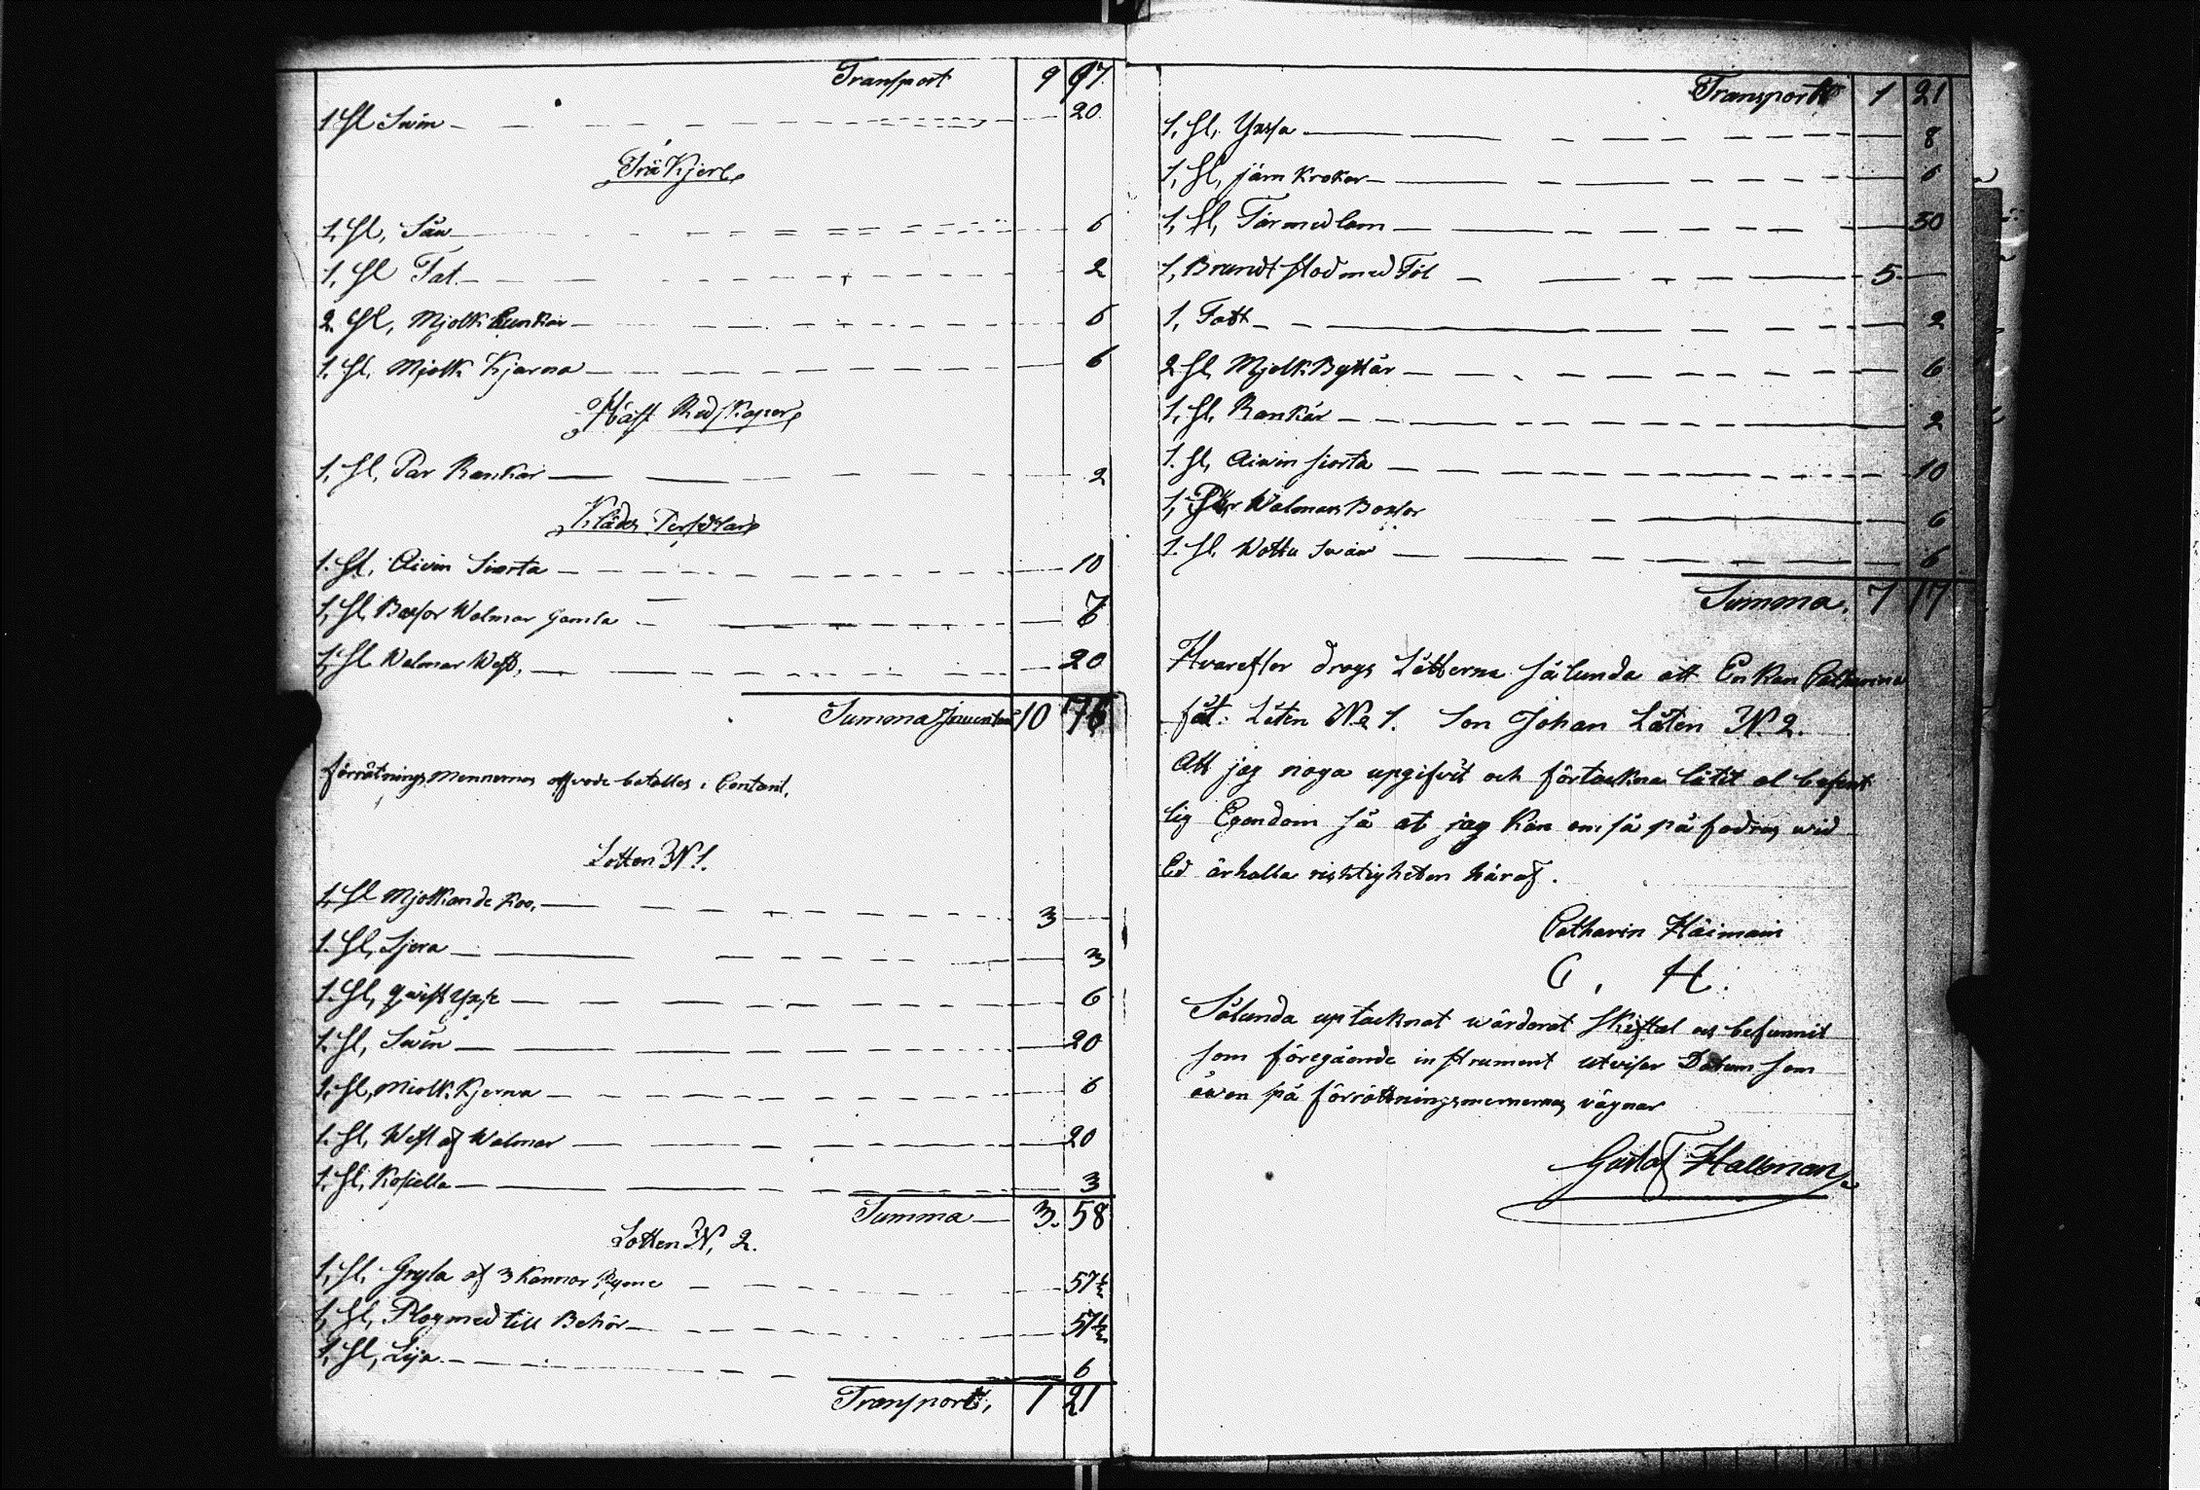 Transport 9 97.
1 St Swin 20
Trä Kjerl,
1, St, Såw 6
1, St Fat 2
2 St, Mjölk Bunkar 6
1. St. Mjölk Kjärna 6
Häst Redskaper,
1, St, Par Rankar 2
Kläder Persedlar
1. St. Aivin Siorta 10
1, St Boxsor Walmar gamla
1, St Walmar West, 20
Summa 10 76
förrätnings mennernas arfvode betaltes i Contant.
Lotten N 1.
1, St Mjölkande Koo, 3
1. St, Sjera 3
1. St, qwist Yxe 6
1. St, Swin 20
1. St, Miölk Kjerna 6
1. St, West af Walmar 20
1. St, Kosiella 3
Summa 3. 58
Lotten N, 2.
1, St, Gryta af 3 Kannor Ryme 57½
1, St, Plog med till Behör 57½
1, St, Lija 6
Transport, 1 21
Transport 1 21
1, St, Yxsa 8
1, St, järn Krokar 6
1, St, Får med lam 30
1, Brundt stod med Föl 5
1, Fatt 2
2 St Mjölk Byttår 6
1, St, Rankår 2
1. St, Aivin siorta 10
1, Par Walmars Boxsor 6
1. St. Wotta 6
Summa, 7 17
Hvarefter drogs Låtterna sålunda att Enkan Catharina
fåt: Låten No 1. Son Johan Låten N. 2.
Att jag noga upgifvit och förtackna låtit al befint
lig Egendom så at jag kan om så på fodras wid
Ed ärhålla richtigheten häraf.
Catharin Häimain
C. H.
Sålunda uptacknat wärderat Skiftal och befunnit
som föregående instrument utviser Datum som
åwen på förrättningsmennernas vägnar
Gustaf Hallman,